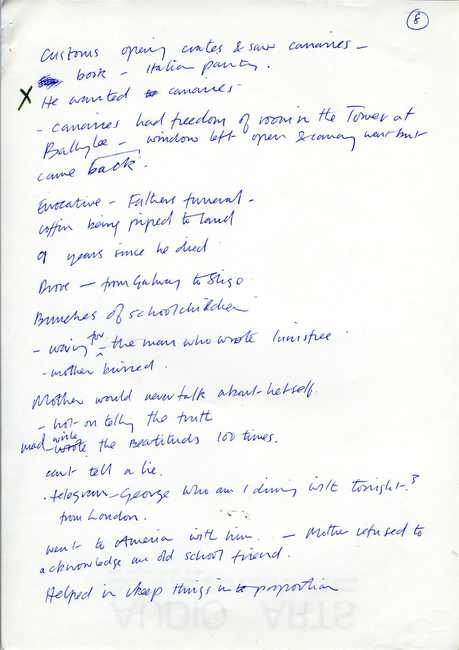 8
Customs opening crates & saw canaries –
book – Italian painting.
X He wanted to canaries –
– canaries had freedom of room in the Tower at
Ballylee – window left open & canary went but
came back.
Evocative – Fathers funeral –
coffin being piped to land
9 years since he died
Drove – from Galway to Sligo
Bunches of schoolchildren
– waving for – the man who wrote Innisfree
– mother buried.
Mother would never talk about herself.
– hot on telling the truth
made write the Beatitudes 100 times.
can't tell a lie.
. telegram – George who am I dining with tonight?
from London.
went to America with him. – Mother refused to
acknowledge an old school friend.
Helped in keep things in proportion
AUDIO ARTS